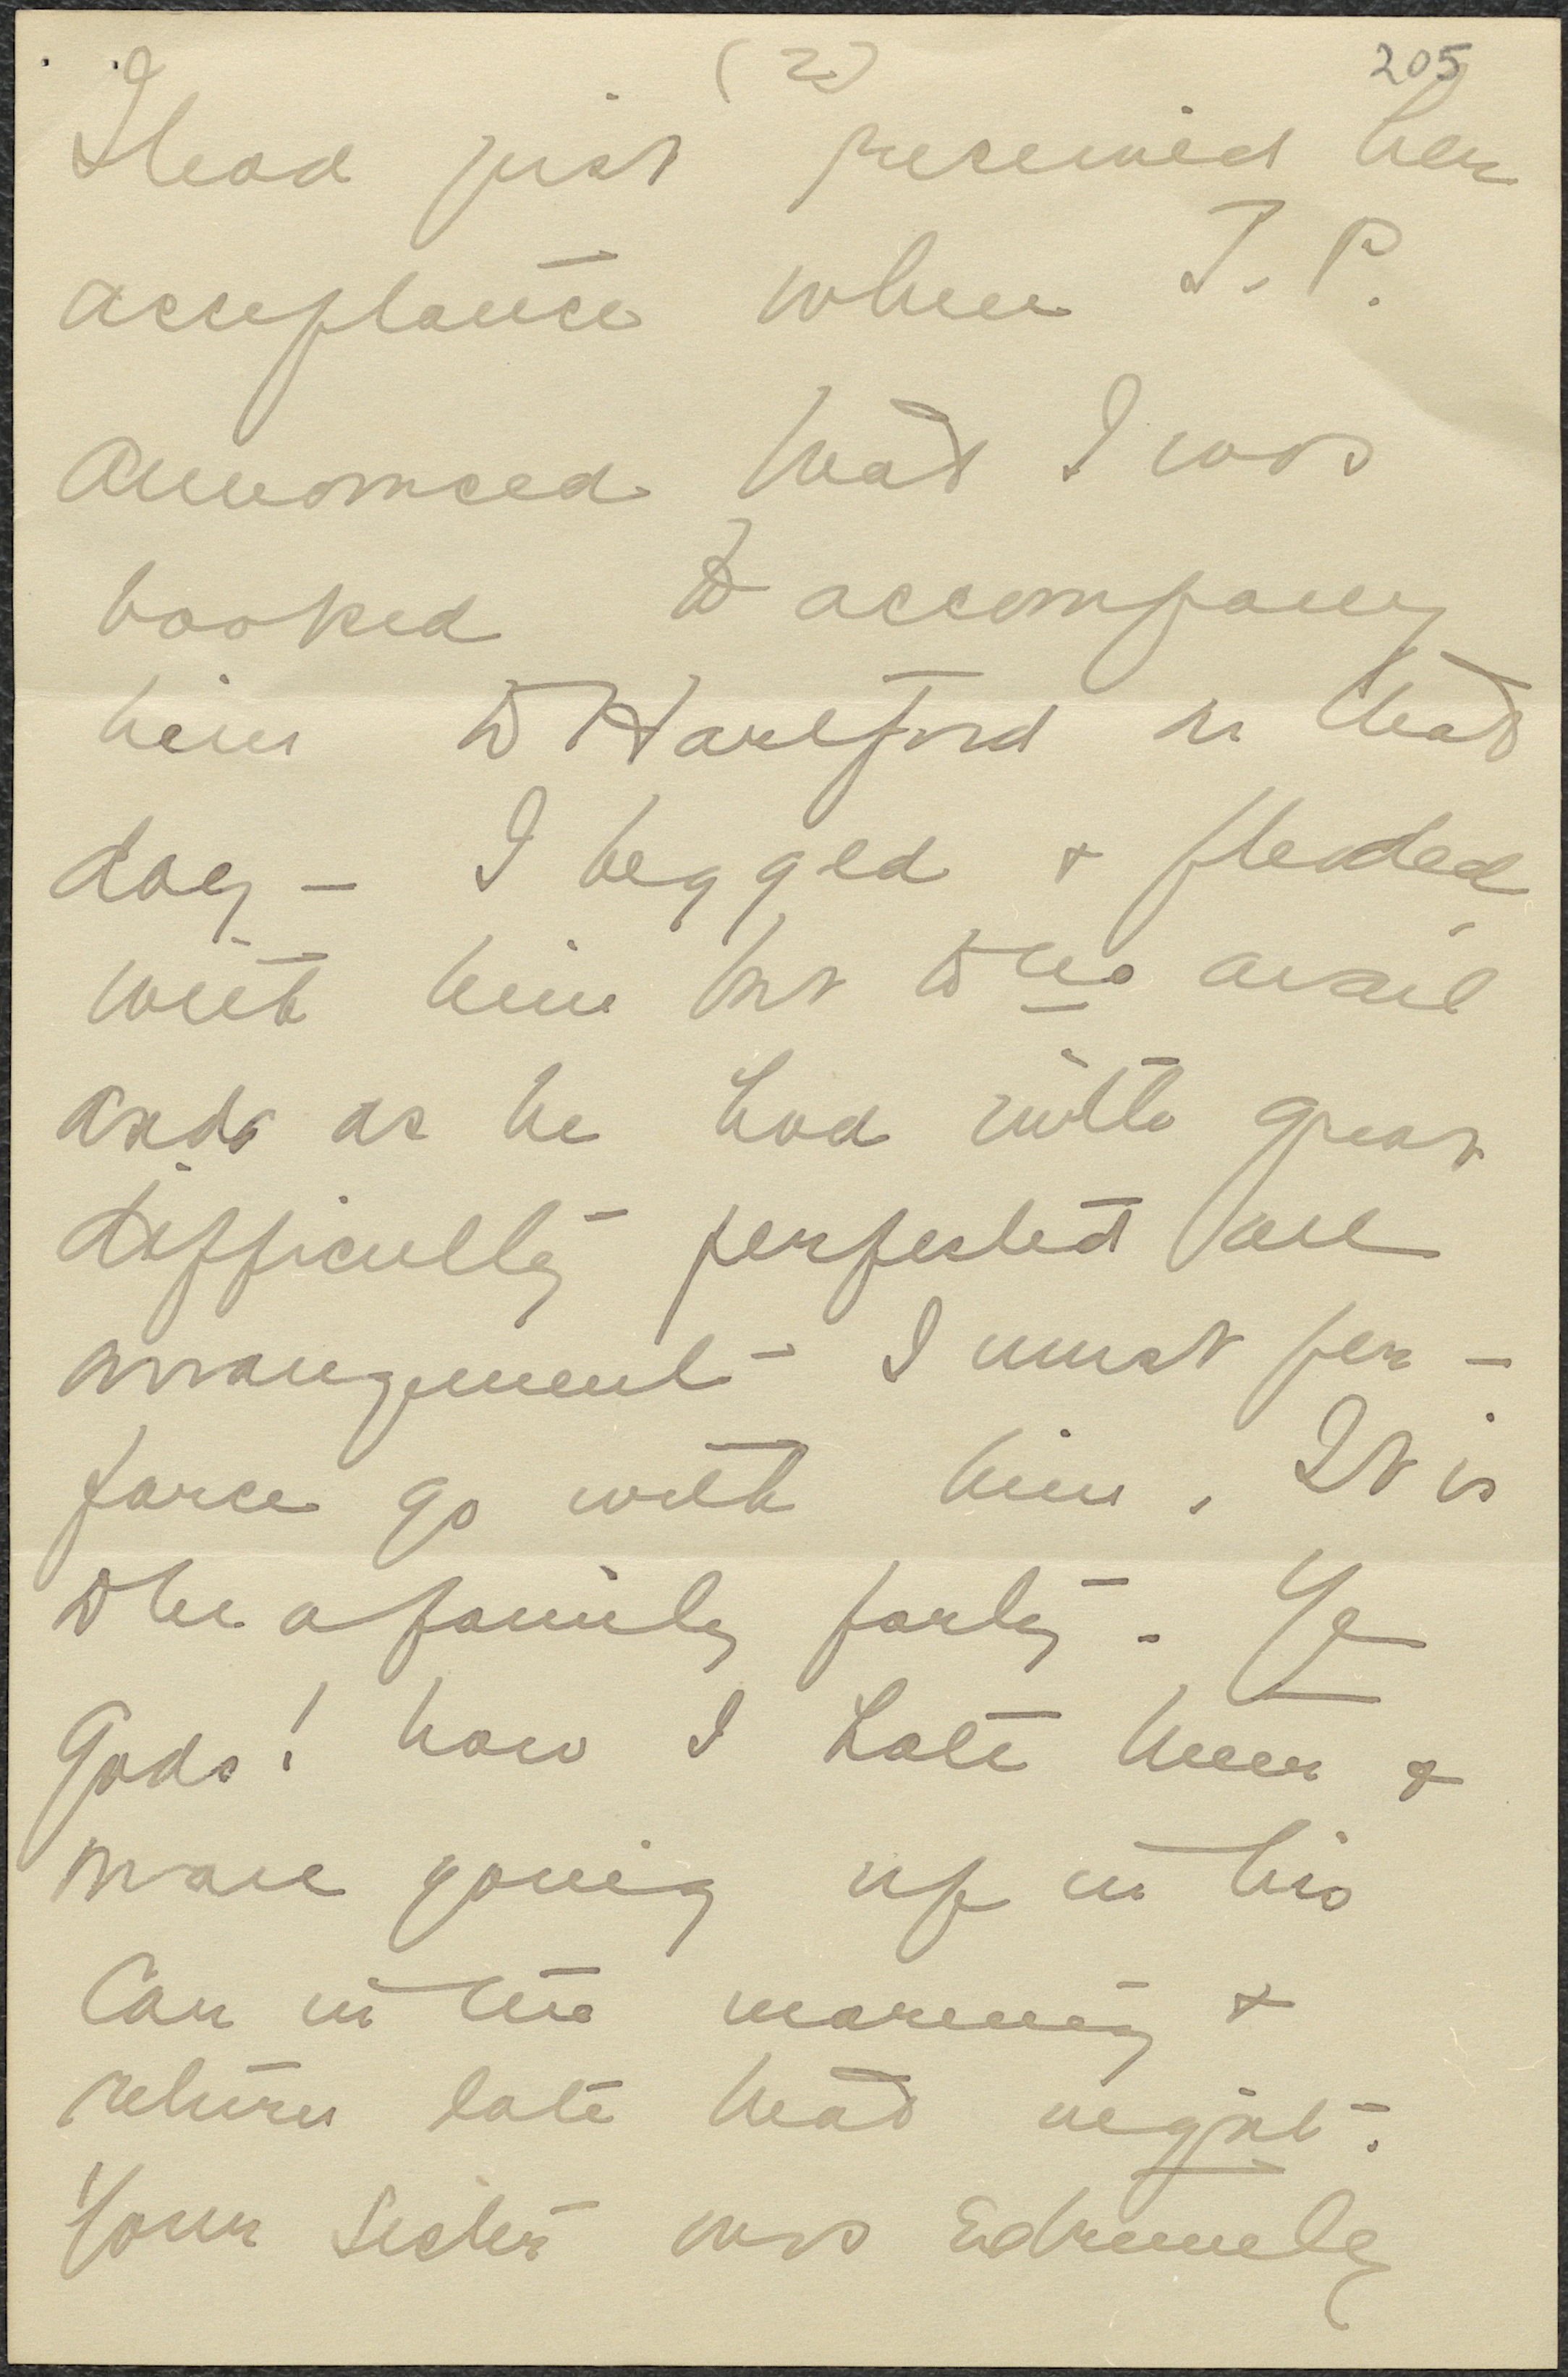 (2)
205
I had just received her
acceptance when J. P.
announced that I was
booked to accompany
him to Hartford on that
day – I begged & pleaded
with him but to no avail
and as he had with great
difficulty perfected all
arrangements I must per-
force go with him. It is
to be a family party. Ye
Gods! how I hate them &
we are going up in his
Car in the morning &
return late that night.
Your Sister was Extremely